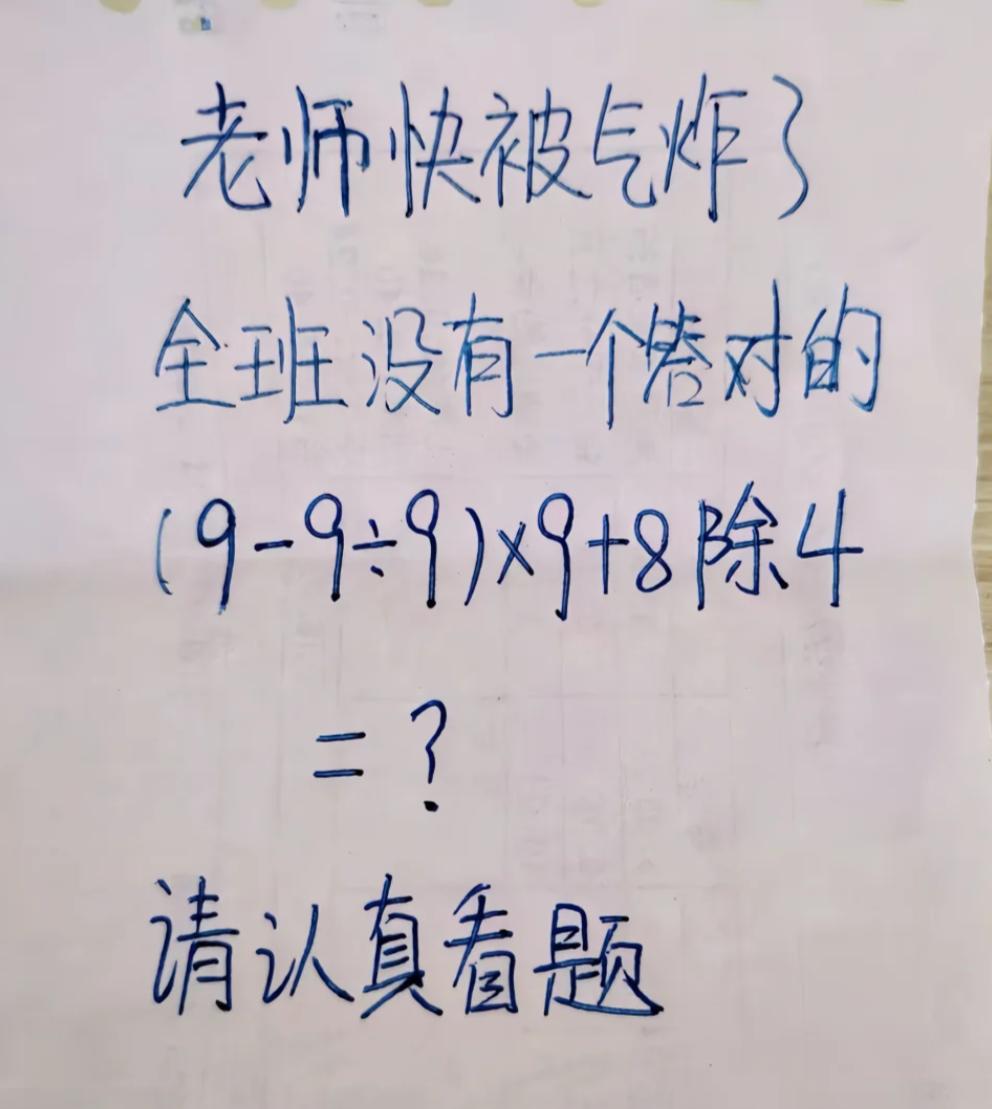 老师快被气炸了
全班没有一个答对的
(9-9÷9)×9+8除4
=?
请认真看题